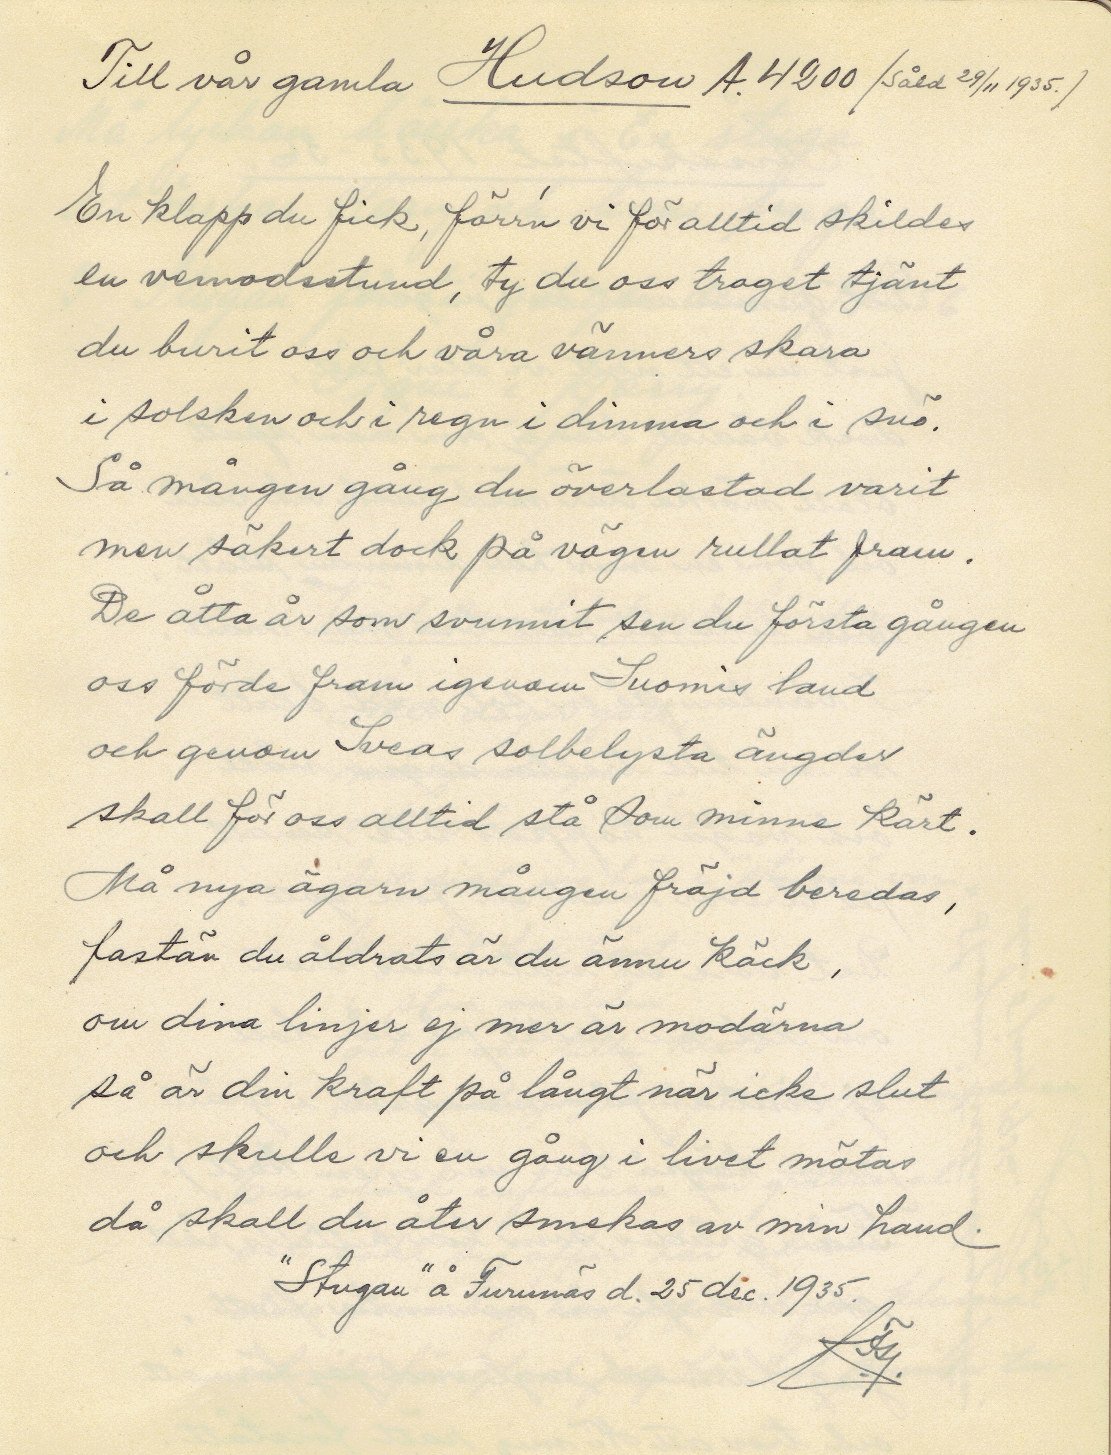 Till vår gamla Hudson A. 4200 (Såld 29/11 1935.)
En klapp du fick, förr'n vi för alltid skildes
en vemodsstund, ty du oss troget tjänt
du burit oss och våra vänners skara
i solsken och i regn i dimma och i snö.
Så mången gång du överlastad varit
men säkert dock på vägen rullat fram.
De åtta år som svunnit sen du första gången
oss förde fram igenom Suomis land
och genom Sveas solbelysta ängder
skall för oss alltid stå som minne kärt.
Må nya ägarn mången fröjd beredas,
fastän du åldrats är du ännu käck,
om dina linjer ej mer är modärna
så är din kraft på långt när icke slut
och skulle vi en gång i livet mötas
då skall du åter smekas av min hand.
"Stugan" å Furunäs d. 25 dec. 1935.